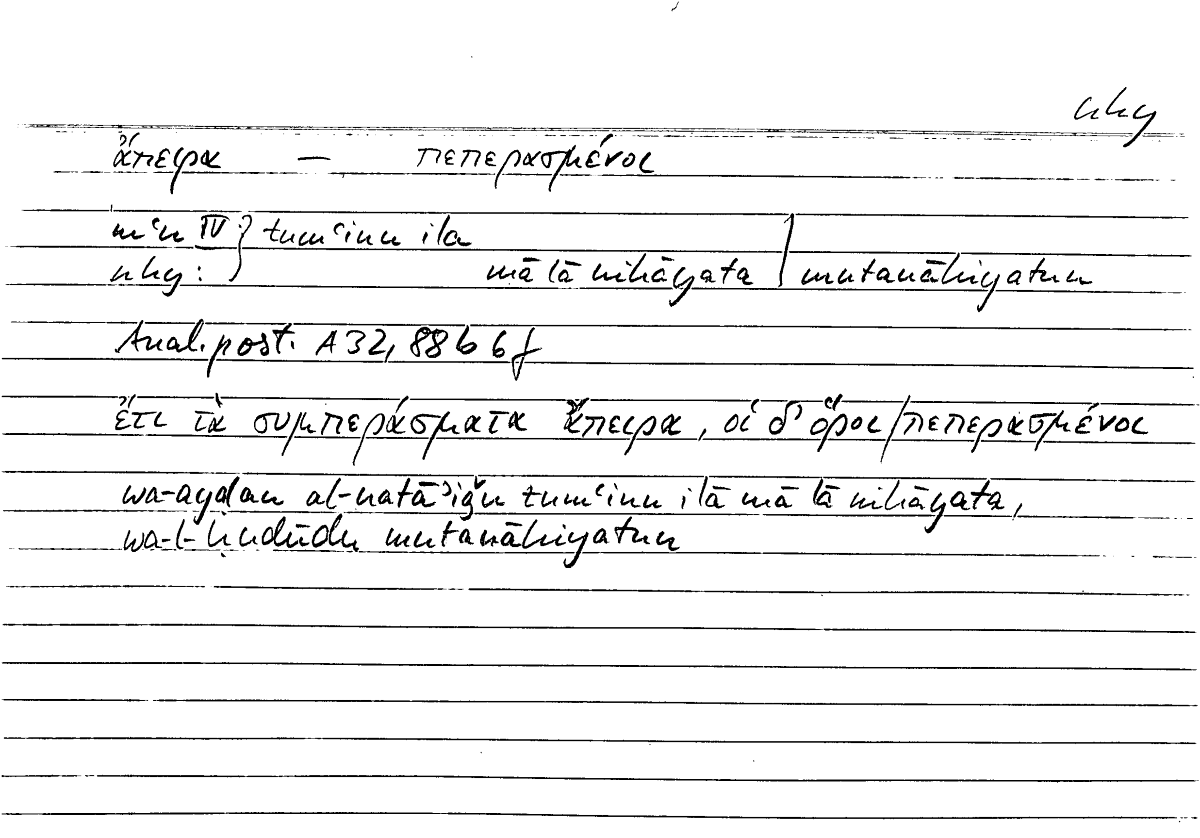 nhy
ἄπειρα — πεπερασμένοι
mʿn IV } tumʿinu ila
nhy: mā lā nihāyata / mutanāhiyatun
Anal. post. A 32, 88 b 6 f
ἔτι τὰ συμπεράσματα ἄπειρα, οἱ δ' ὅροι / πεπερασμένοι
wa-ayḍan al-natāʾiǧu tumʿinu ilā mā lā nihāyata,
wa-l-ḥudūdu mutanāhiyatun